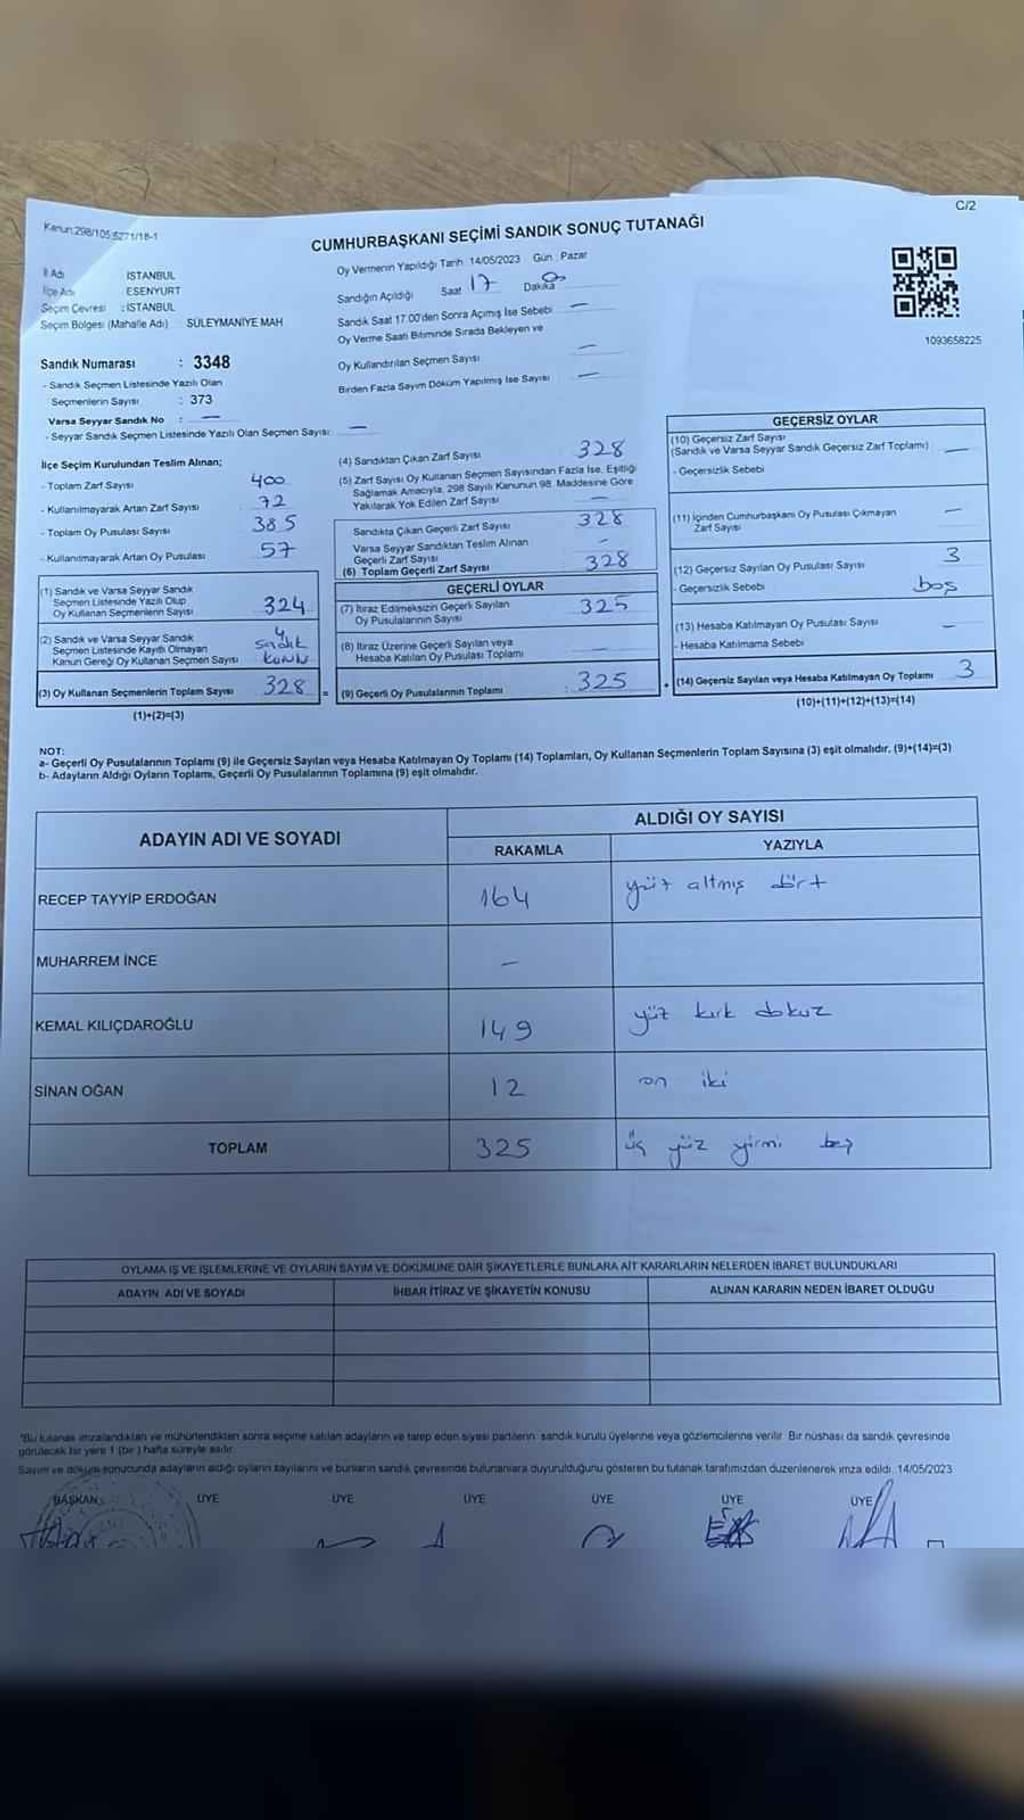 C/2
Kanun:298/105;5271/18-1
CUMHURBAŞKANI SEÇİMİ SANDIK SONUÇ TUTANAĞI
İl Adı : İSTANBUL
İlçe Adı : ESENYURT
Seçim Çevresi : İSTANBUL
Seçim Bölgesi (Mahalle Adı) SÜLEYMANİYE MAH
Sandık Numarası : 3348
- Sandık Seçmen Listesinde Yazılı Olan
Seçmenlerin Sayısı : 373
Varsa Seyyar Sandık No : —
- Seyyar Sandık Seçmen Listesinde Yazılı Olan Seçmen Sayısı: —
Oy Vermenin Yapıldığı Tarih 14/05/2023 Gün : Pazar
Sandığın Açıldığı Saat 17 Dakika 0
Sandık Saat 17.00'den Sonra Açımış İse Sebebi —
Oy Verme Saati Bitiminde Sırada Bekleyen ve
Oy Kullandırılan Seçmen Sayısı —
Birden Fazla Sayım Döküm Yapılmış İse Sayısı —
1093658225
İlçe Seçim Kurulundan Teslim Alınan;
- Toplam Zarf Sayısı 400
- Kullanılmayarak Artan Zarf Sayısı 72
- Toplam Oy Pusulası Sayısı 385
- Kullanılmayarak Artan Oy Pusulası 57
(1) Sandık ve Varsa Seyyar Sandık
Seçmen Listesinde Yazılı Olup
Oy Kullanan Seçmenlerin Sayısı 324
(2) Sandık ve Varsa Seyyar Sandık
Seçmen Listesinde Kayıtlı Olmayan
Kanun Gereği Oy Kullanan Seçmen Sayısı 4 Sandık
(3) Oy Kullanan Seçmenlerin Toplam Sayısı 328 =
(1)+(2)=(3)
(4) Sandıktan Çıkan Zarf Sayısı 328
(5) Zarf Sayısı Oy Kullanan Seçmen Sayısından Fazla İse, Eşitliği
Sağlamak Amacıyla, 298 Sayılı Kanunun 98. Maddesine Göre
Yakılarak Yok Edilen Zarf Sayısı —
Sandıkta Çıkan Geçerli Zarf Sayısı 328
Varsa Seyyar Sandıktan Teslim Alınan
Geçerli Zarf Sayısı -
(6) Toplam Geçerli Zarf Sayısı 328
GEÇERLİ OYLAR
(7) İtiraz Edilmeksizin Geçerli Sayılan
Oy Pusulalarının Sayısı 325
(8) İtiraz Üzerine Geçerli Sayılan veya
Hesaba Katılan Oy Pusulası Toplamı —
(9) Geçerli Oy Pusulalarının Toplamı : 325
GEÇERSİZ OYLAR
(10) Geçersiz Zarf Sayısı
(Sandık ve Varsa Seyyar Sandık Geçersiz Zarf Toplamı) —
- Geçersizlik Sebebi
(11) İçinden Cumhurbaşkanı Oy Pusulası Çıkmayan
Zarf Sayısı —
(12) Geçersiz Sayılan Oy Pusulası Sayısı 3
- Geçersizlik Sebebi boş
(13) Hesaba Katılmayan Oy Pusulası Sayısı —
- Hesaba Katılmama Sebebi
+ (14) Geçersiz Sayılan veya Hesaba Katılmayan Oy Toplamı 3
(10)+(11)+(12)+(13)=(14)
NOT:
a- Geçerli Oy Pusulalarının Toplamı (9) ile Geçersiz Sayılan veya Hesaba Katılmayan Oy Toplamı (14) Toplamları, Oy Kullanan Seçmenlerin Toplam Sayısına (3) eşit olmalıdır. (9)+(14)=(3)
b- Adayların Aldığı Oyların Toplamı, Geçerli Oy Pusulalarının Toplamına (9) eşit olmalıdır.
ADAYIN ADI VE SOYADI
ALDIĞI OY SAYISI
RAKAMLA YAZIYLA
RECEP TAYYİP ERDOĞAN 164 yüz altmış dört
MUHARREM İNCE —
KEMAL KILIÇDAROĞLU 149 yüz kırk dokuz
SİNAN OĞAN 12 on iki
TOPLAM 325 üç yüz yirmi beş
OYLAMA İŞ VE İŞLEMLERİNE VE OYLARIN SAYIM VE DÖKÜMÜNE DAİR ŞİKAYETLERLE BUNLARA AİT KARARLARIN NELERDEN İBARET BULUNDUKLARI
ADAYIN ADI VE SOYADI İHBAR İTİRAZ VE ŞİKAYETİN KONUSU ALINAN KARARIN NEDEN İBARET OLDUĞU
*Bu tutanak imzalandıktan ve mühürlendikten sonra seçime katılan adayların ve talep eden siyasi partilerin sandık kurulu üyelerine veya gözlemcilerine verilir. Bir nüshası da sandık çevresinde
görülecek bir yere 1 (bir) hafta süreyle asılır.
Sayım ve döküm sonucunda adayların aldığı oyların sayılarını ve bunların sandık çevresinde bulunanlara duyurulduğunu gösteren bu tutanak tarafımızdan düzenlenerek imza edildi. 14/05/2023
BAŞKAN ÜYE ÜYE ÜYE ÜYE ÜYE ÜYE